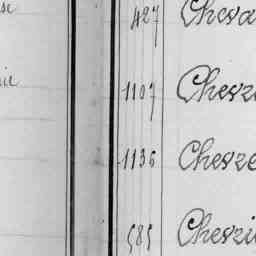 427 Cheva
1107 Chevz
1136 Chevze
585 Chevzi